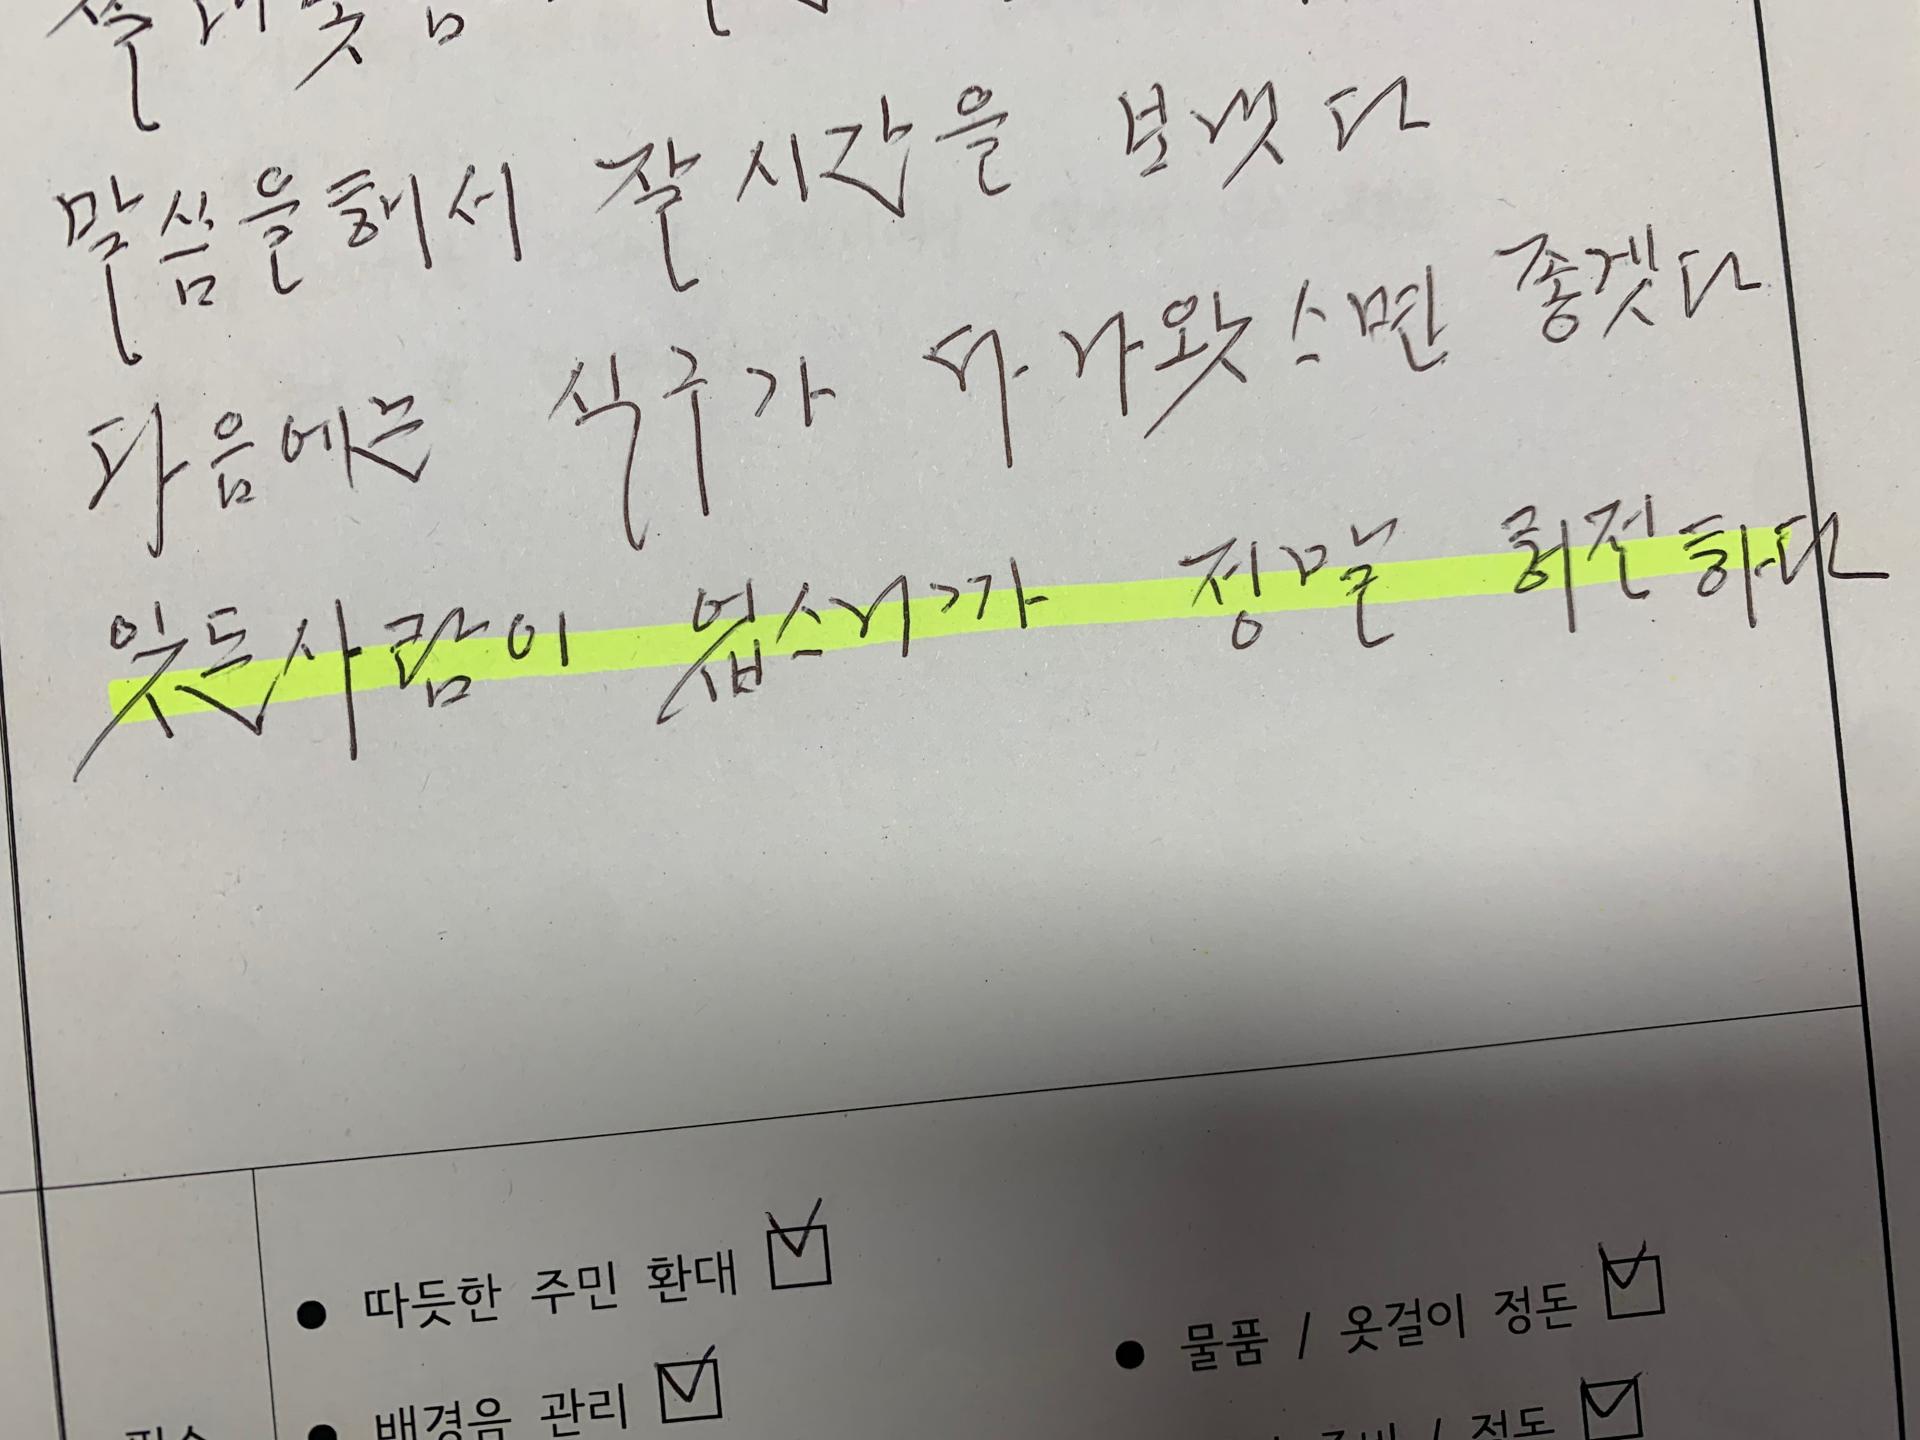 말씀을해서 잘 시간을 보냇다
다음에는 식구가 다 나왓스면 좋겟다
잇든사람이 업스니까 정말 허전하다
따듯한 주민 환대
물품 / 옷걸이 정돈
배경음 관리
/ 정돈